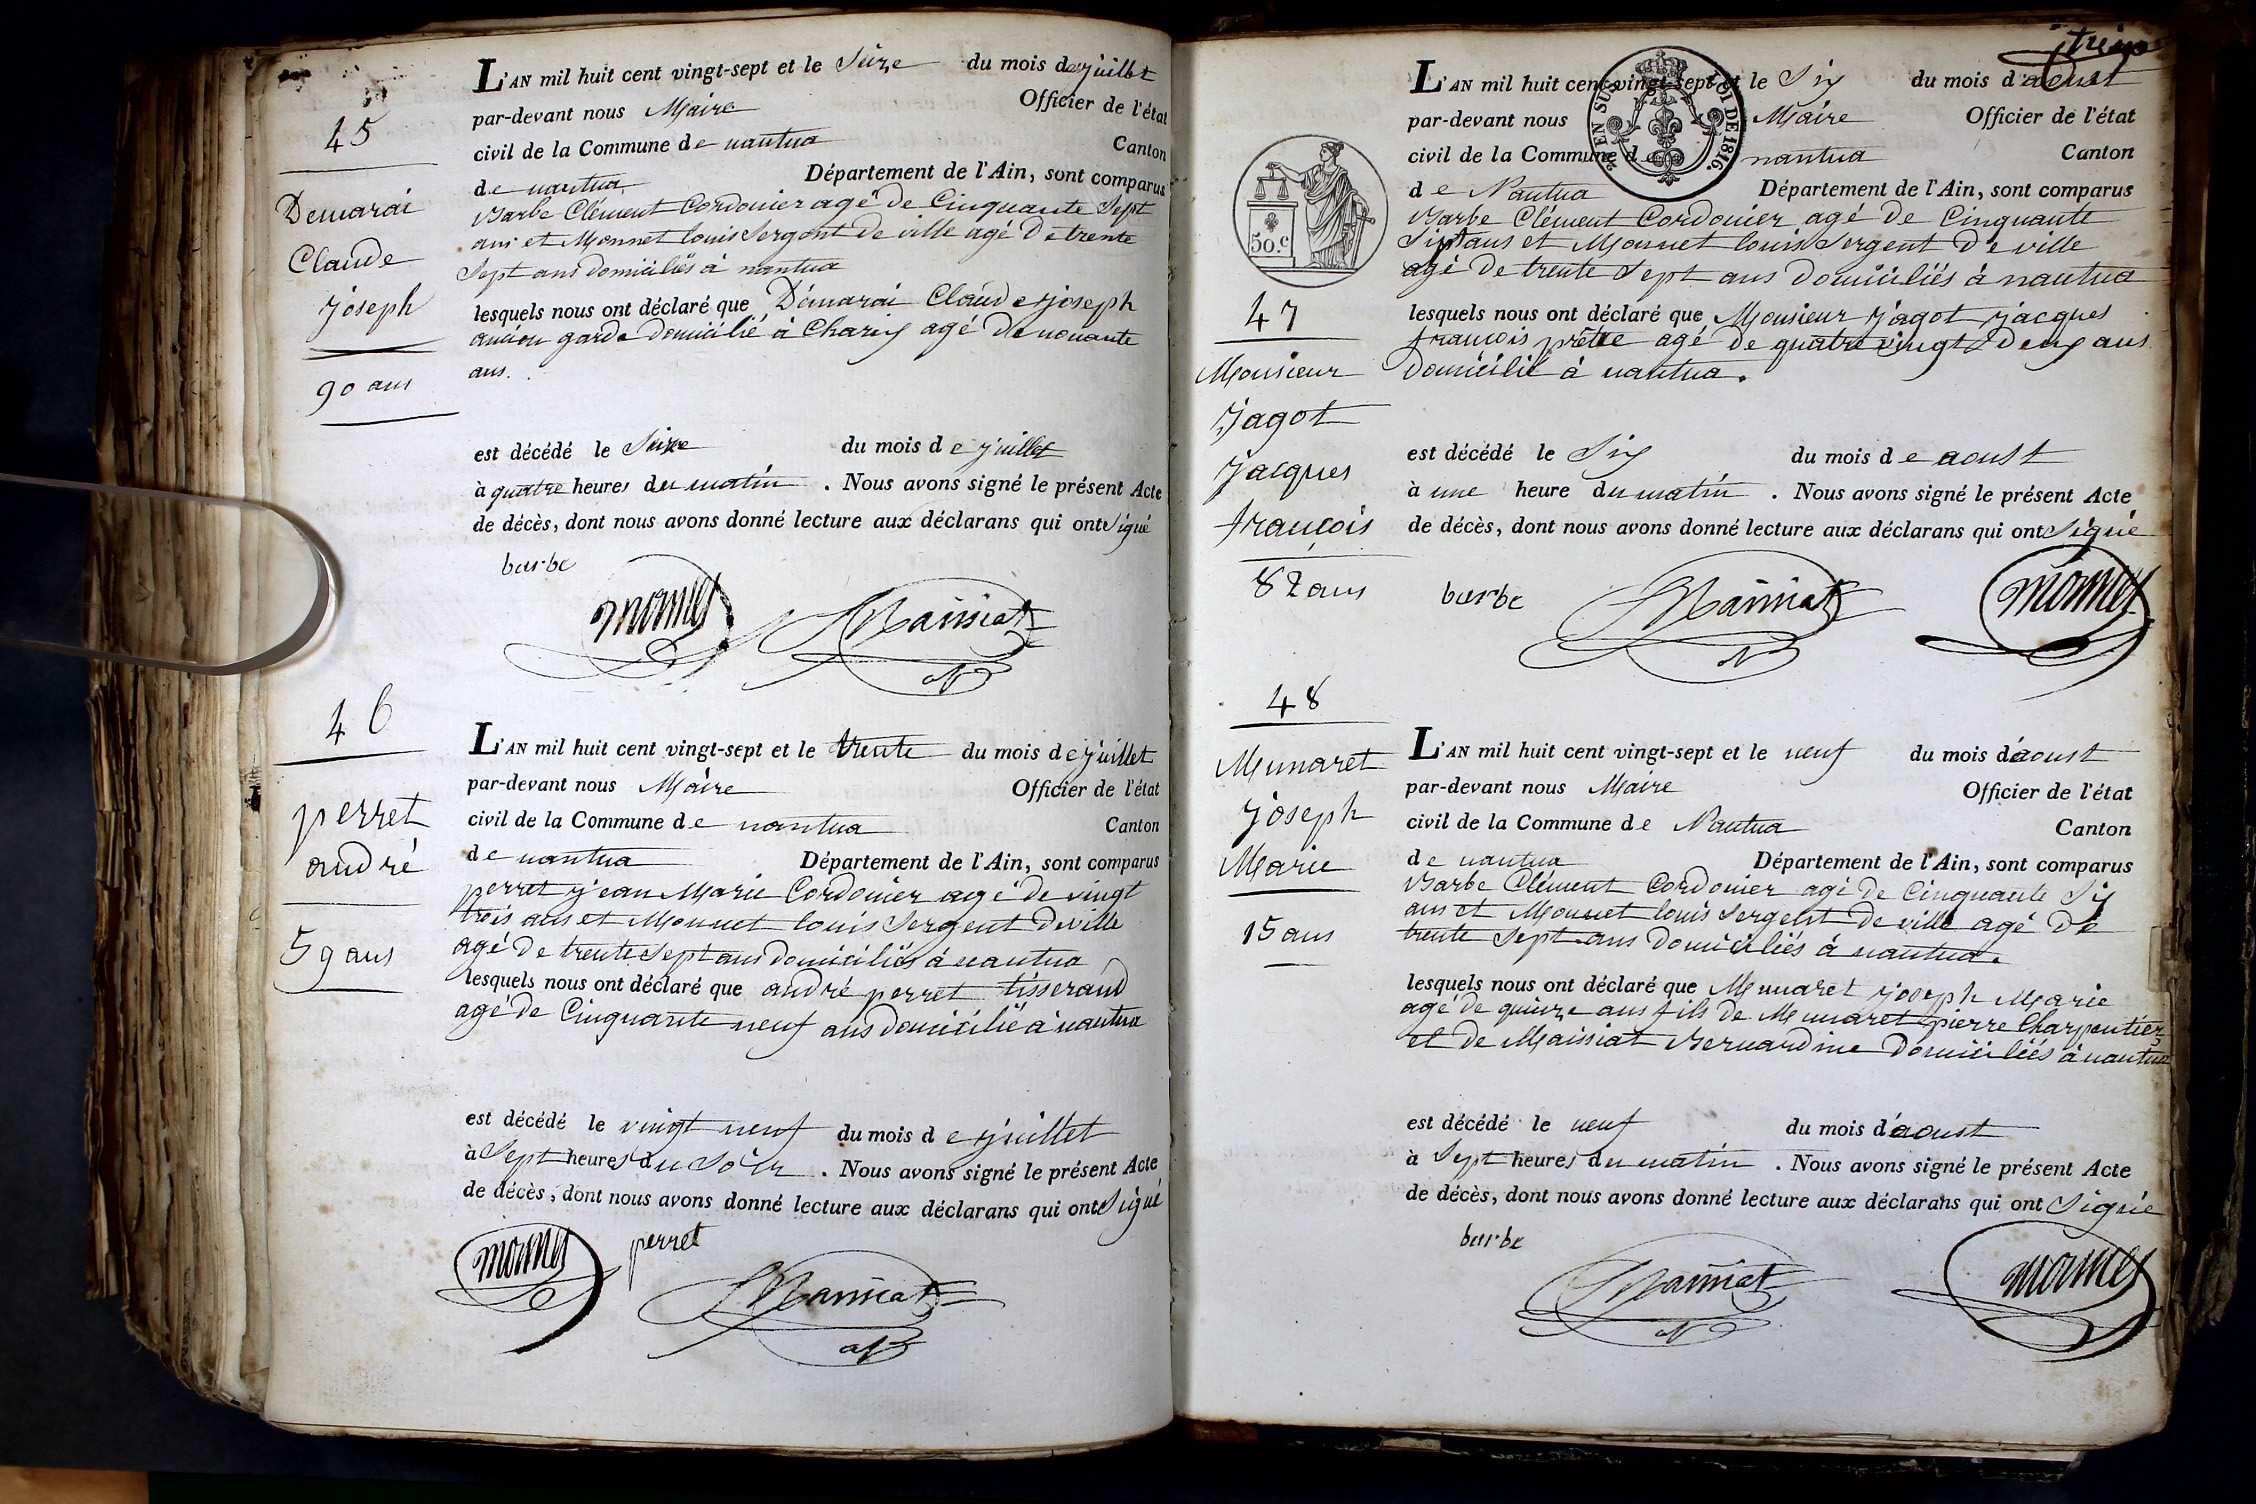 45
Demarai
Claude
joseph
90 ans
L'AN mil huit cent vingt-sept et le Seize du mois de juillet
par-devant nous Maire Officier de l'état
civil de la Commune de nantua Canton
de nantua Département de l'Ain, sont comparus
Barbe Clément Cordonier agé de Cinquante Sept
ans et Monnet louis Sergent de ville agé de trente
Sept ans domiciliés à nantua
lesquels nous ont déclaré que Démarai Claude joseph
ancien garde domicilié à Charix agé de nonante
ans.
est décédé le Seize du mois de juillet
à quatre heures du matin . Nous avons signé le présent Acte
de décès, dont nous avons donné lecture aux déclarans qui ont Signé
barbe
monnet Maissiat
46
perret
andré
59 ans
L'AN mil huit cent vingt-sept et le trente du mois de juillet
par-devant nous Maire Officier de l'état
civil de la Commune de nantua Canton
de nantua Département de l'Ain, sont comparus
perret jean Marie Cordonier agé de vingt
trois ans et Monnet louis Sergent de ville
agé de trente Sept ans domiciliés à nantua
lesquels nous ont déclaré que andré perret tisserand
agé de Cinquante neuf ans domicilié à nantua
est décédé le vingt neuf du mois de juillet
à Sept heures du Soir . Nous avons signé le présent Acte
de décès, dont nous avons donné lecture aux déclarans qui ont Signé
monnet perret
Maissiat
EN SUS LOI DE 1816.
50.c
47
Monsieur
Jagot
jacques
françois
82 ans
L'AN mil huit cent vingt-sept et le Six du mois d'aoust
par-devant nous Maire Officier de l'état
civil de la Commune de nantua Canton
de Nantua Département de l'Ain, sont comparus
Barbe Clément Cordonier agé de Cinquante
Sept ans et Monnet louis Sergent de ville
agé de trente Sept ans domiciliés à nantua
lesquels nous ont déclaré que Monsieur Jagot jacques
françois prêtre agé de quatre vingt deux ans
domicilié à nantua.
est décédé le Six du mois de aoust
à une heure du matin . Nous avons signé le présent Acte
de décès, dont nous avons donné lecture aux déclarans qui ont Signé
barbe Maissiat monnet
48
Munaret
joseph
Marie
15 ans
L'AN mil huit cent vingt-sept et le neuf du mois d'aoust
par-devant nous Maire Officier de l'état
civil de la Commune de Nantua Canton
de nantua Département de l'Ain, sont comparus
Barbe Clément Cordonier agé de Cinquante Six
ans et Monnet louis Sergent de ville agé de
trente Sept ans domiciliés à nantua.
lesquels nous ont déclaré que Munaret joseph Marie
agé de quinze ans fils de Munaret pierre Charpentier
et de Maissiat Bernardine domiciliés à nantua
est décédé le neuf du mois d'aoust
à Sept heures du matin . Nous avons signé le présent Acte
de décès, dont nous avons donné lecture aux déclarans qui ont Signé
barbe
Maissiat monnet